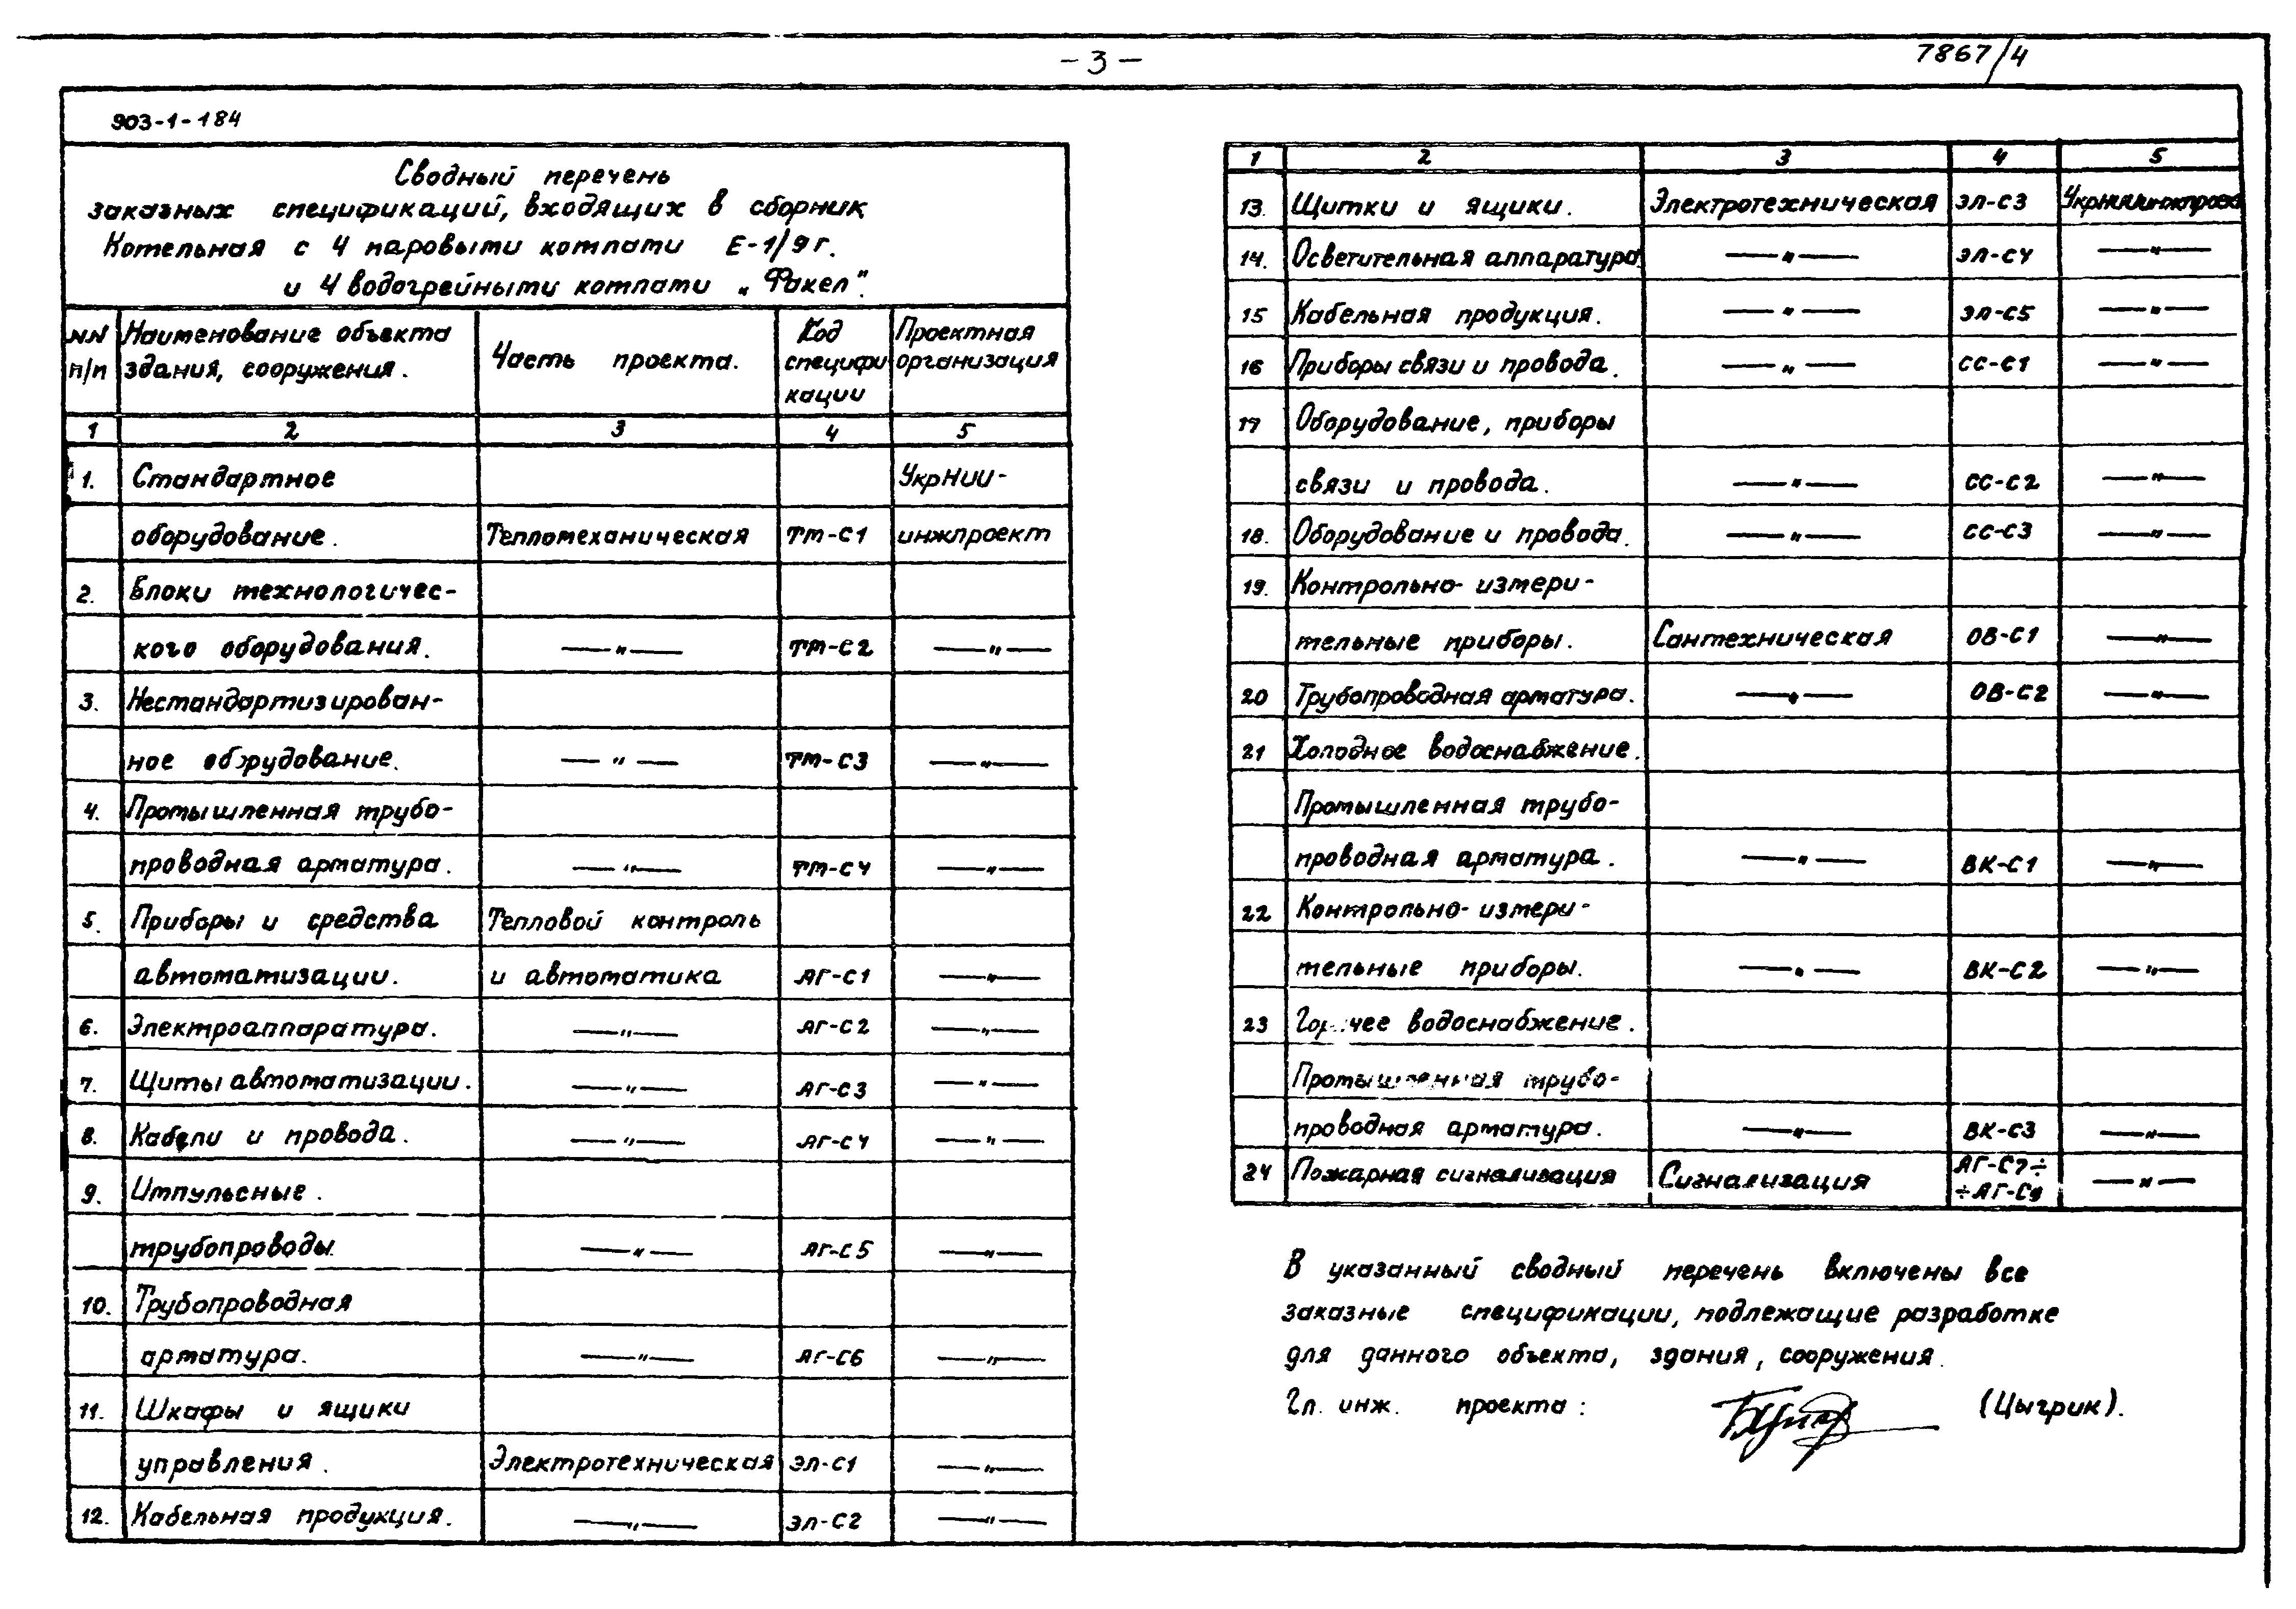 - 3 -
7867/4
903-1-184
Сводный перечень
заказных спецификаций, входящих в сборник
Котельная с 4 паровыми котлами Е-1/9г.
и 4 водогрейными котлами „Факел".
NN п/п
Наименование объекта здания, сооружения.
Часть проекта.
Код специфи кации
Проектная организация
1 2 3 4 5
1. Стандартное УкрНИИ-
оборудование. Тепломеханическая ТМ-С1 инжпроект
2. Блоки технологичес-
кого оборудования. —"— ТМ-С2 —"—
3. Нестандартизирован-
ное оборудование. —"— ТМ-С3 —"—
4. Промышленная трубо-
проводная арматура. —"— ТМ-С4 —"—
5. Приборы и средства Тепловой контроль
автоматизации. и автоматика АГ-С1 —"—
6. Электроаппаратура. —"— АГ-С2 —"—
7. Щиты автоматизации. —"— АГ-С3 —"—
8. Кабели и провода. —"— АГ-С4 —"—
9. Импульсные.
трубопроводы —"— АГ-С5 —"—
10. Трубопроводная
арматура. —"— АГ-С6 —"—
11. Шкафы и ящики
управления. Электротехническая ЭЛ-С1 —"—
12. Кабельная продукция. —"— ЭЛ-С2 —"—
1 2 3 4 5
13. Щитки и ящики. Электротехническая ЭЛ-С3 УкрНИИинжпроект
14. Осветительная аппаратура. —"— ЭЛ-С4 —"—
15 Кабельная продукция. —"— ЭЛ-С5 —"—
16 Приборы связи и провода. —"— СС-С1 —"—
17 Оборудование, приборы
связи и провода. —"— СС-С2 —"—
18. Оборудование и провода. —"— СС-С3 —"—
19. Контрольно-измери-
тельные приборы. Сантехническая ОВ-С1 —"—
20 Трубопроводная арматура. —"— ОВ-С2 —"—
21 Холодное водоснабжение.
Промышленная трубо-
проводная арматура. —"— ВК-С1 —"—
22 Контрольно-измери-
тельные приборы. —"— ВК-С2 —"—
23 Горячее водоснабжение.
Промышленная трубо-
проводная арматура. —"— ВК-С3 —"—
24 Пожарная сигнализация Сигнализация АГ-С7÷ ÷АГ-С9 —"—
В указанный сводный перечень включены все
заказные спецификации, подлежащие разработке
для данного объекта, здания, сооружения.
Гл. инж. проекта: (Цыгрик).